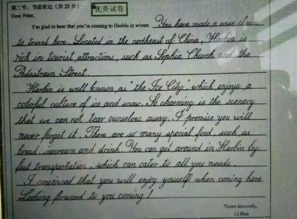 第二节：书面表达（共25分） 优秀试卷
Dear Peter,
I'm glad to hear that you're coming to Harbin in winter. You have made a wise choice
to travel here. Located in the northeast of China, Harbin is
rich in tourist attractions, such as Sophia Church and the
Pedestrain Street.
Harbin is well known as "the Ice City" which enjoys a
colorful culture of ice and snow. So charming is the scenery
that we can not tear ourselves away. I promise you will
never forget it. There are so many special food such as
bread, icecream and drink. You can get around in Harbin by
fast transportation, which can cater to all you needs.
I convinced that you will enjoy yourself when coming here.
Looking forward to you coming!
Yours sincerely,
Li Hua